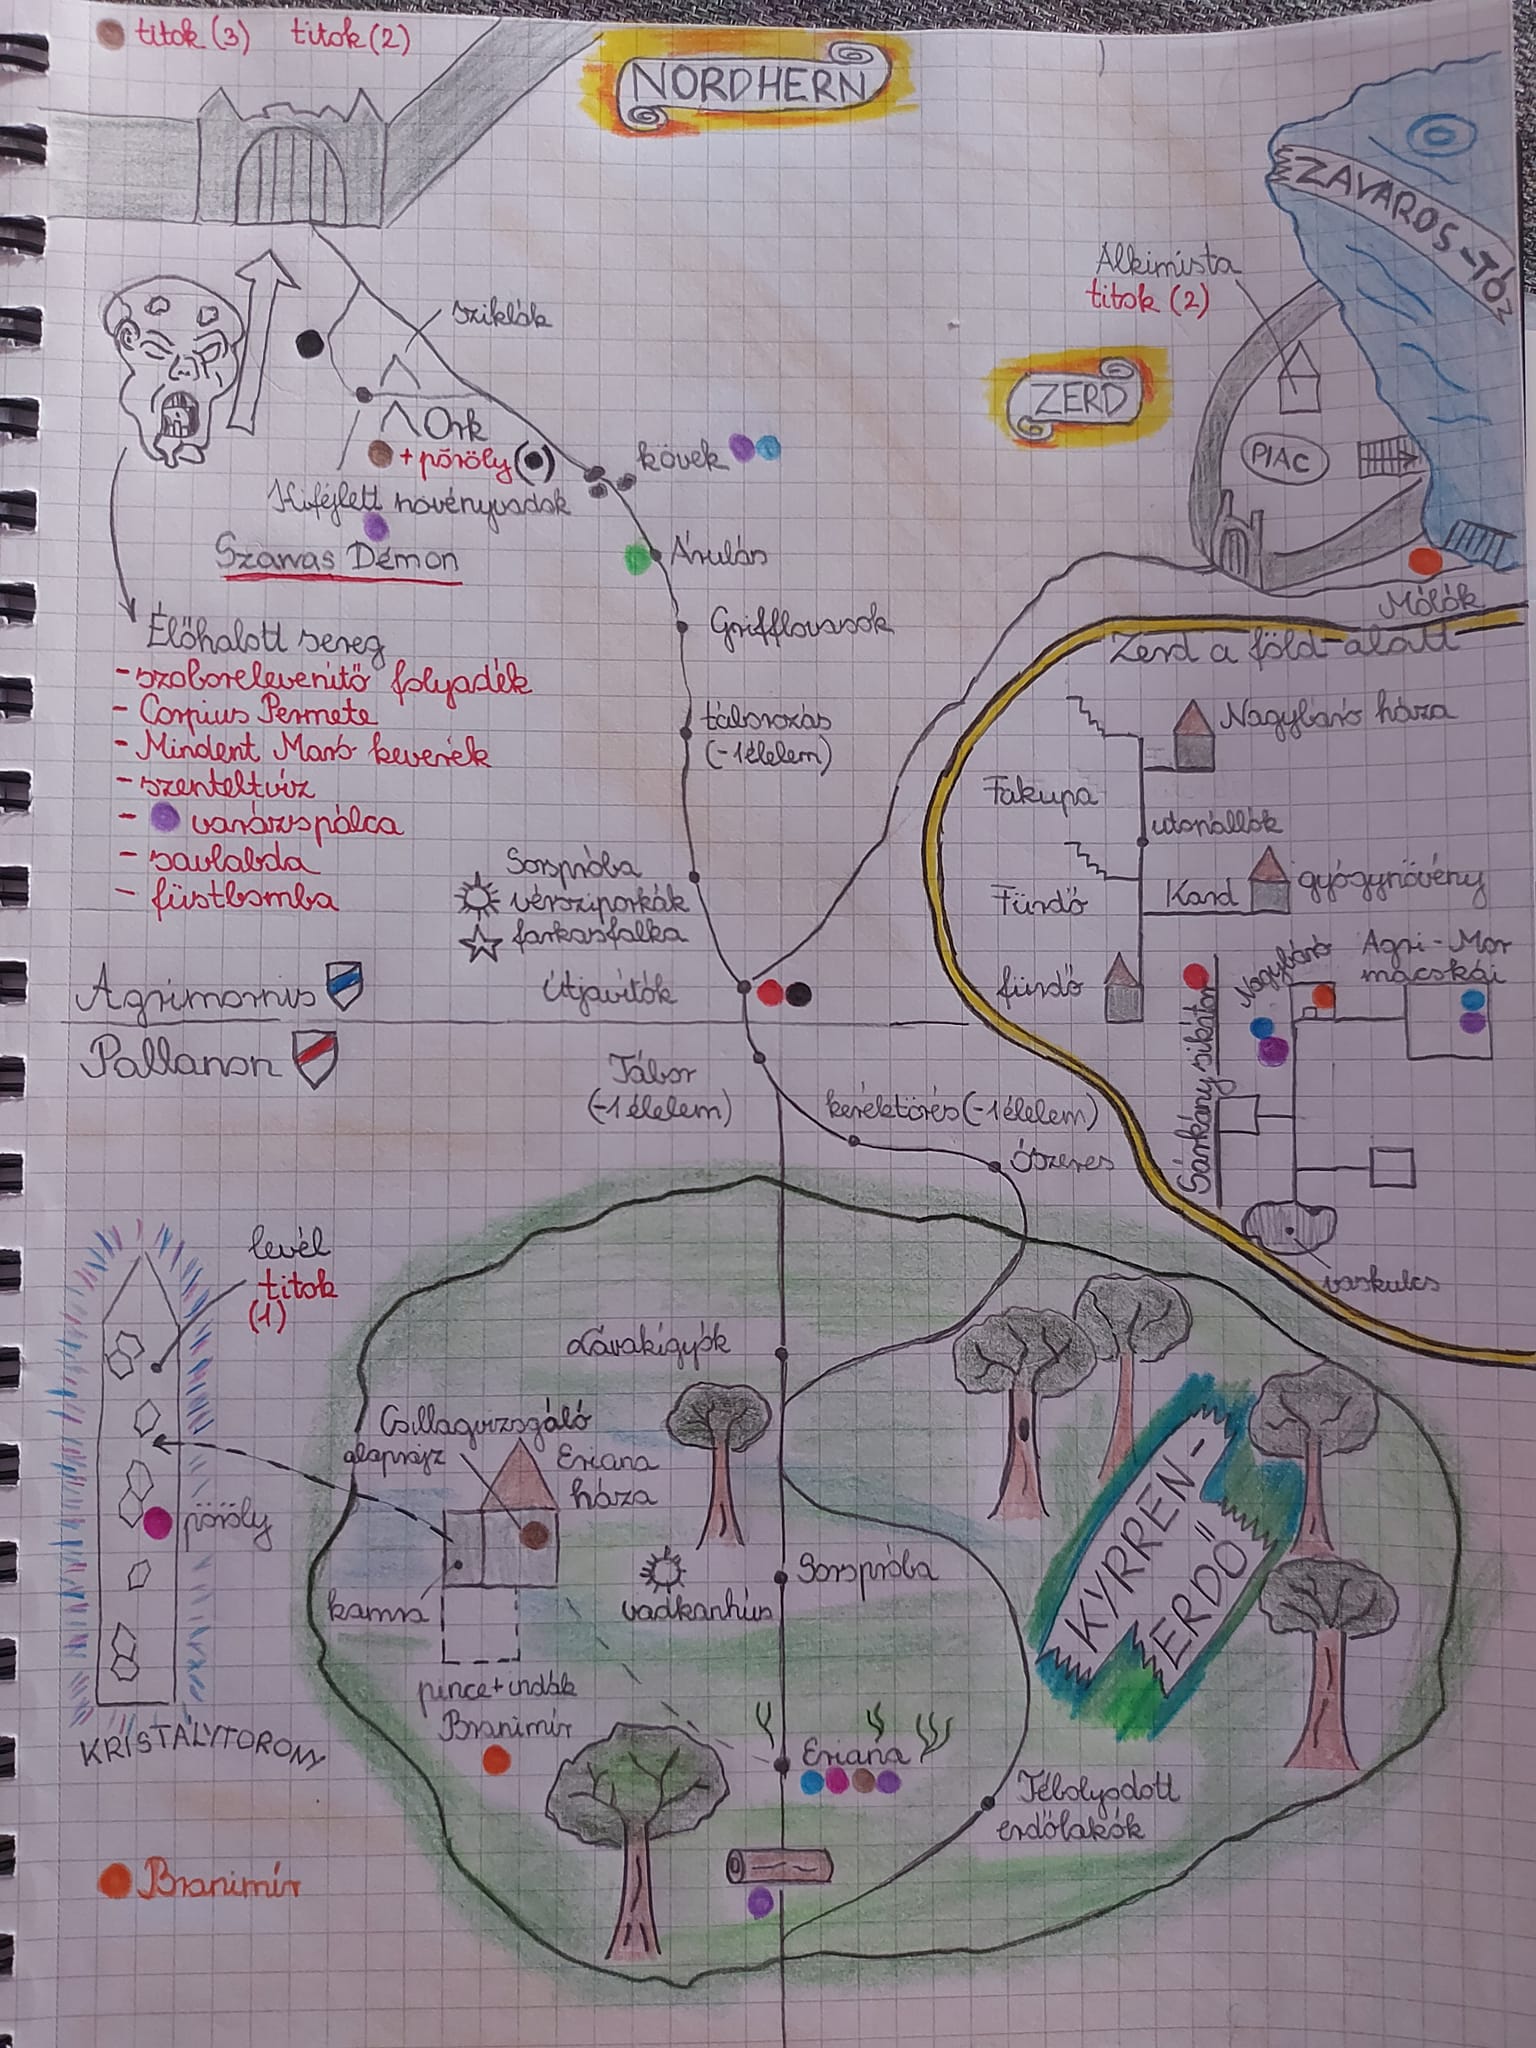 titok (3) titok (2)
NORDHERN
ZAVAROS-TÓ
Alkimista
titok (2)
sziklák
ZERD
Ork
+ pöröly
PIAC
kövek
Kifejlett növényvadok
Szarvas Démon
Árulás
Mólók
Élőhalott sereg
Grifflovasok
Zerd a föld alatt
- szoborelevenítő folyadék
- Corpius Permete
- Mindent Maró keverék
- szenteltvíz
- varázspálca
- savlabda
- füstbomba
táborozás
(-1 élelem)
Nagybáró háza
Fakupa
útonállók
Sorspróba
vérsziporkák
farkasfalka
Fürdő
Kard
gyógynövény
Útjavítók
fürdő
Nagybáró
Agri-Mor
macskái
Agrimornus
Pallanon
Tábor
(-1 élelem)
keréktörés (-1 élelem)
Ószeres
Sárkány sikátor
vaskulcs
levél
titok
(1)
Lávakígyók
Csillagvizsgáló
alaprajz
Eriana
háza
pöröly
KYRREN-
ERDŐ
kamra
vadkanhús
Sorspróba
pince + indák
Branimír
KRISTÁLYTORONY
Eriana
Tébolyodott
erdőlakók
Branimír